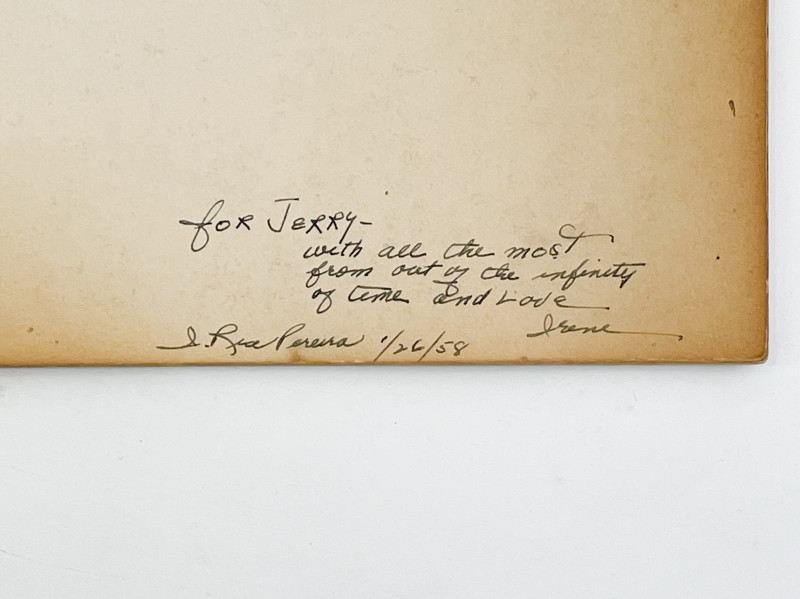 for JERRY-
with all the most
from out of the infinity
of time and Love
Irene
I. Rice Pereira 1/26/58